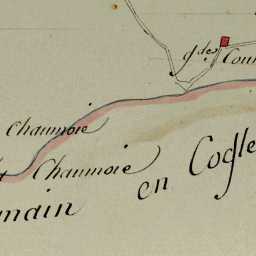 gde Cour
Chaumoie
Chaumoie
en Cogle
main